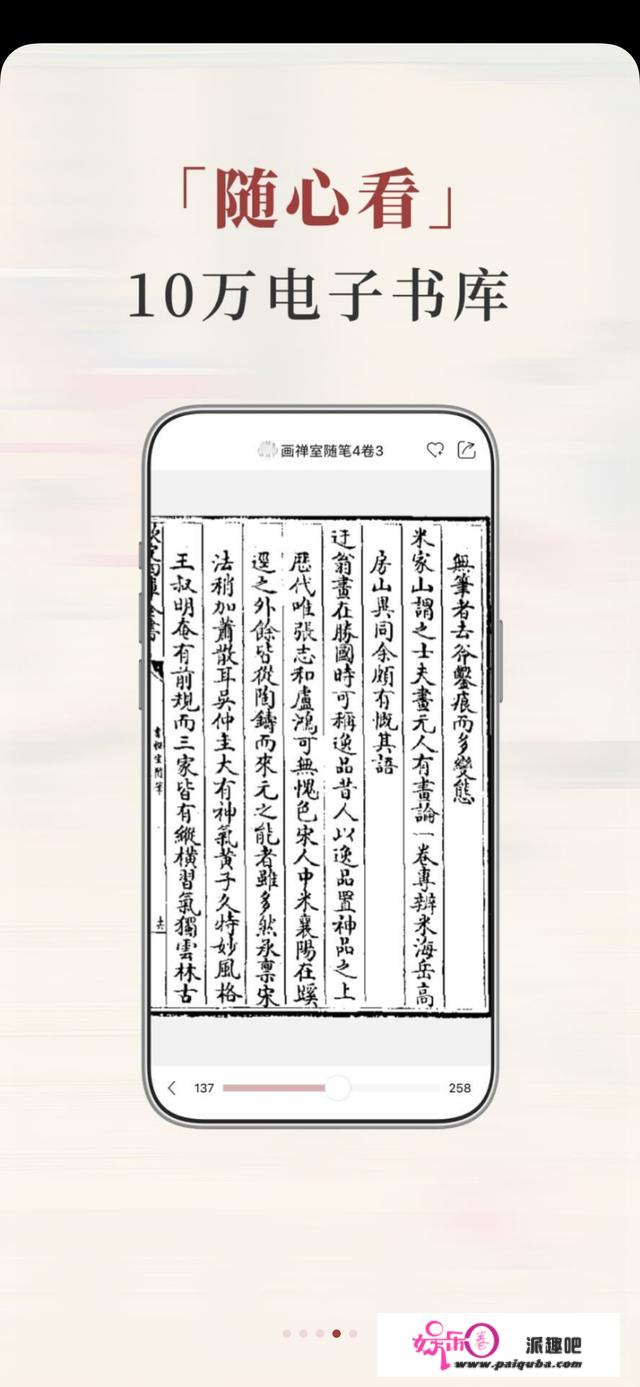 「随心看」
10万电子书库
画禅室随笔4卷3
無筆者去斧鑿痕而多變態
米家山謂之士夫畫元人有畫論一卷專辨米海岳高
房山異同余頗有慨其語
迂翁畫在勝國時可稱逸品昔人以逸品置神品之上
歷代唯張志和盧鴻可無愧色宋人中米襄陽在蹊
逕之外餘皆從陶鑄而來元之能者雖多然承稟宋
法稍加蕭散耳吳仲圭大有神氣黃子久特妙風格
王叔明奄有前規而三家皆有縱橫習氣獨雲林古
欽定四庫全書
畫禪室隨筆
137
258
娱乐卷
派趣吧
www.paiquba.com